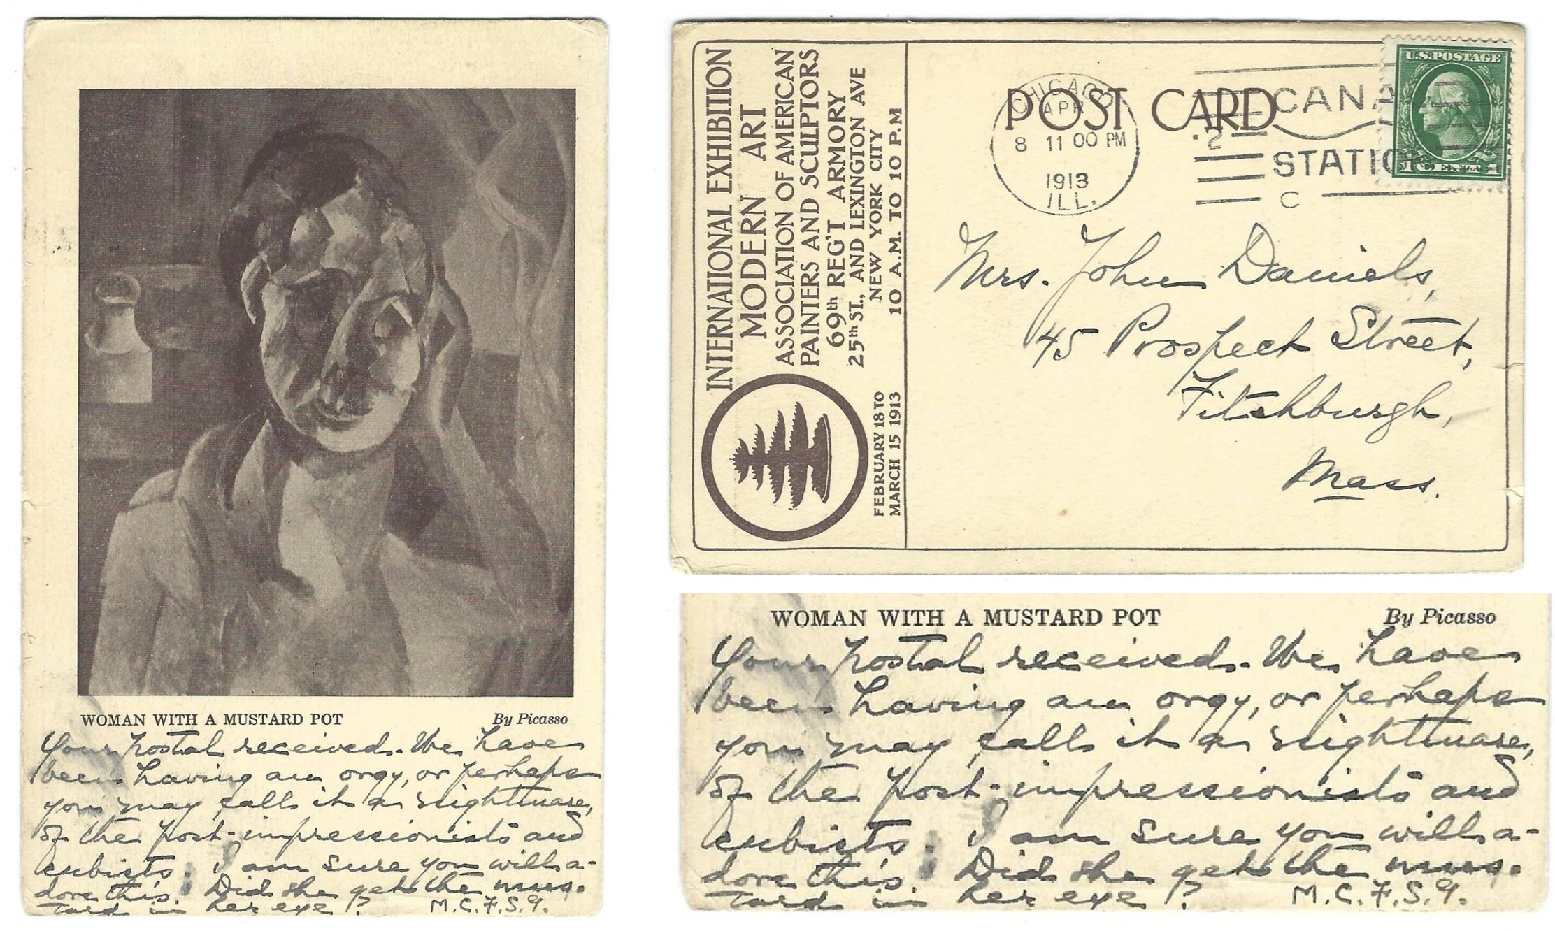 WOMAN WITH A MUSTARD POT By Picasso
Your postal received. We have
been having an orgy, or perhaps
you may call it a nightmare,
of the post-impressionists and
cubists. I am sure you will a-
dore this. Did she get the mus-
tard in her eye? M.C.F.S.9.
INTERNATIONAL EXHIBITION
MODERN ART
ASSOCIATION OF AMERICAN
PAINTERS AND SCULPTORS
69th REG'T ARMORY
25th ST., AND LEXINGTON AVE
NEW YORK CITY
10 A.M. TO 10 P.M
FEBRUARY 18 TO
MARCH 15 1913
POST CARD
CHICAGO
APR
8 11 00 PM
1913
ILL.
CANA
2
STATIO
C
U.S. POSTAGE
1 CENT 1
Mrs. John Daniels,
45 Prospect Street,
Fitchburgh,
Mass.
WOMAN WITH A MUSTARD POT By Picasso
Your postal received. We have
been having an orgy, or perhaps
you may call it a nightmare,
of the post-impressionists and
cubists. I am sure you will a-
dore this. Did she get the mus-
tard in her eye? M.C.F.S.9.